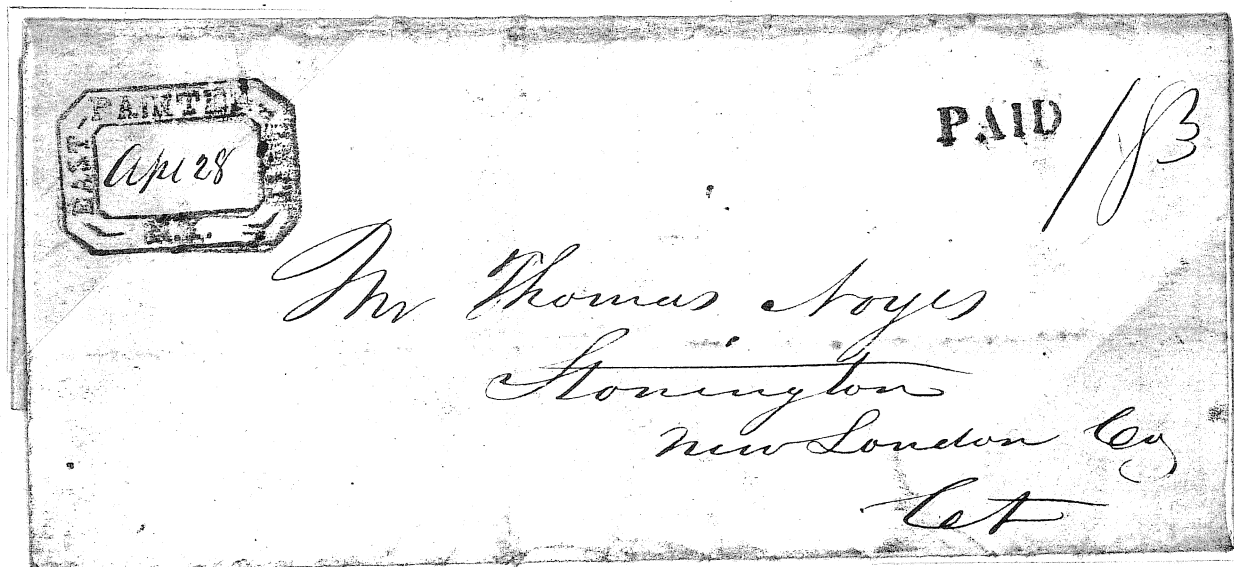 EAST-PAINTED POST
N.Y.
Apl 28
PAID
Mr Thomas Noyes
Stonington
New London Co
Ct